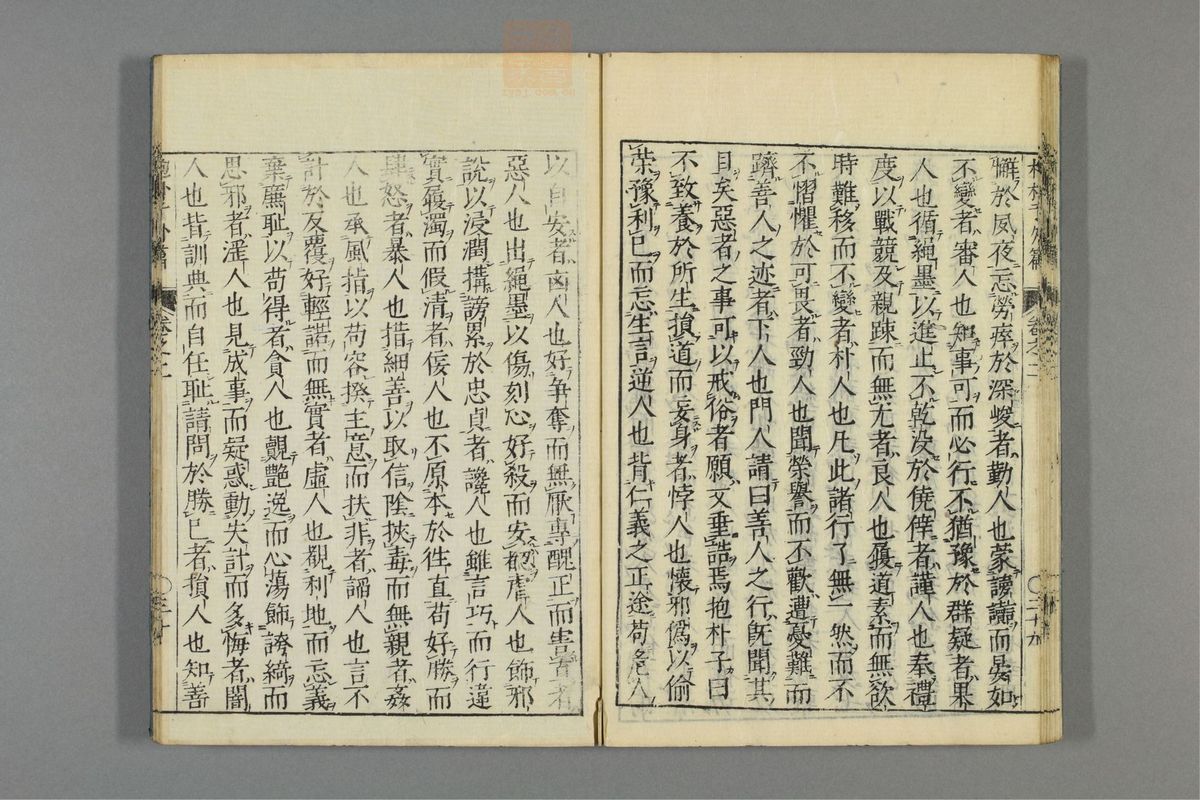 懈於夙夜忘勞瘁於深峻者勤人也蒙謗讟而晏如
不變者審人也知事可而必行不猶豫於群疑者果
人也循繩墨以進止不乾没於僥倖者謹人也奉禮
度以戰競及親疎而無尤者良人也履道素而無欲
時難移而不變者朴人也凡此諸行了無一然而不
不慴懼於可畏者勁人也聞榮譽而不歡遭憂難而
躋善人之迹者下人也門人請曰善人之行既聞其
目矣惡者之事可以戒俗者願文垂誥焉抱朴子曰
不致養於所生損道而妄身者悖人也懷邪僞以偷
榮豫利己而忘生言逆人也背仁義之正途苟
以自安者凶人也好爭奪而無厭專醜正而害
惡人也出繩墨以傷刻心好殺而安人也飾邪
說以浸潤搆謗累於忠貞者讒人也雖言巧而行違
實履濁而假清者佞人也不原本於徃直苟好勝而
肆怒者暴人也措細善以取信陰挾毒而無親者姦
人也承風指以苟容揆主意而扶非者諂人也言不
計於反覆好輕諾而無實者虛人也覩利地而忘義
棄廉耻以苟得者貪人也覿艷逸而心蕩飾誇綺而
思邪者淫人也見成事而疑惑動失計而多悔者闇
人也背訓典而自任耻請問於勝己者損人也知善